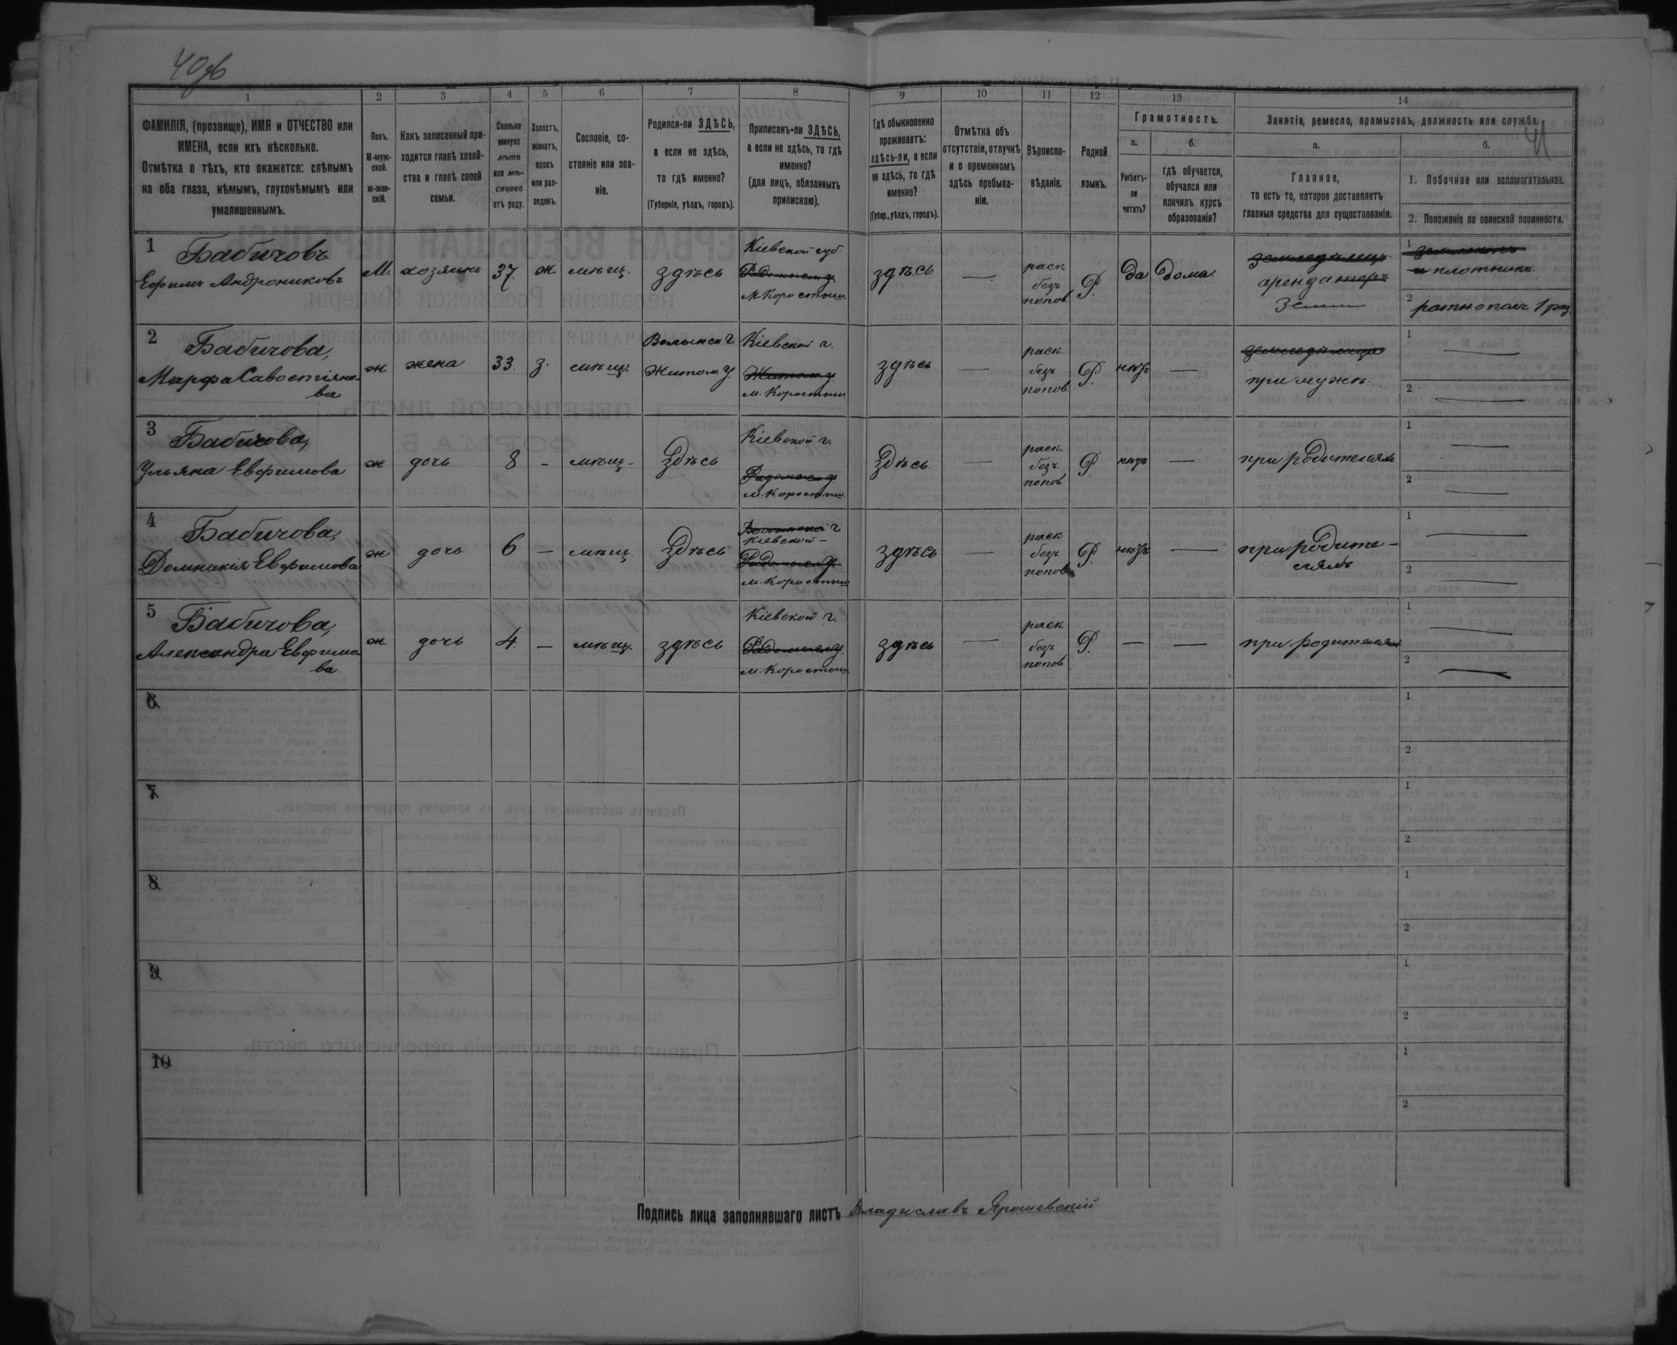 40об
41
1
2
3
4
5
6
7
8
9
10
11
12
13
14
ФАМИЛІЯ, (прозвище), ИМЯ и ОТЧЕСТВО или
ИМЕНА, если ихъ нѣсколько.
Отмѣтка о тѣхъ, кто окажется: слѣпымъ
на оба глаза, нѣмымъ, глухонѣмымъ или
умалишеннымъ.
Полъ.
М-муж-
ской.
ж-жен-
скій.
Какъ записанный при-
ходится главѣ хозяй-
ства и главѣ своей
семьи.
Сколько
минуло
лѣтъ
или мѣ-
сяцевъ
отъ роду.
Холостъ,
женатъ,
вдовъ
или раз-
веденъ.
Сословіе, со-
стояніе или зва-
ніе.
Родился-ли ЗДѢСЬ,
а если не здѣсь,
то гдѣ именно?
(Губернія, уѣздъ, городъ).
Приписанъ-ли ЗДѢСЬ,
а если не здѣсь, то гдѣ
именно?
(для лицъ, обязанныхъ
припискою).
Гдѣ обыкновенно
проживаетъ:
здѣсь-ли, а если
не здѣсь, то гдѣ
именно?
(Губер., уѣздъ, городъ).
Отмѣтка объ
отсутствіи, отлучкѣ
и о временномъ
здѣсь пребыва-
ніи.
Вѣроиспо-
вѣданіе.
Родной
языкъ.
Грамотность.
а.
Умѣетъ-
ли
читать?
б.
гдѣ обучается,
обучался или
кончилъ курсъ
образованія?
Занятіе, ремесло, промыселъ, должность или служба.
а.
Главное,
то есть то, которое доставляетъ
главныя средства для существованія.
б.
1. Побочное или вспомогательное.
2. Положеніе по воинской повинности.
1
Бабичовъ
Ефимъ Андрониковъ
М.
хозяинъ
37
ж
мѣщ.
здѣсь
Кіевской губ.
Радомысл. у.
м. Коростыш.
здѣсь
—
раск.
безъ
попов.
Р.
да
дома
земледѣлецъ
аренда
земли
1
и плотникъ
2
ратн. опол. 1 раз.
2
Бабичова,
Марфа Савостіяно-
ва
ж
жена
33.
з.
мѣщ.
Волынск. г.
Житом. у.
Кіевской г.
Житом. у.
м. Коростыш.
здѣсь
—
раск.
безъ
попов.
Р.
нѣтъ
—
при мужѣ
1
—
2
—
3
Бабичова,
Ульяна Евфимова
ж
дочь
8
-
мѣщ.
Здѣсь
Кіевской г.
Радомысл. у.
м. Коростыш.
Здѣсь
—
раск.
безъ
попов.
Р.
нѣтъ
—
при родителяхъ
1
—
2
—
4
Бабичова,
Домникія Евфимова
ж
дочь
6
—
мѣщ.
Здѣсь
Волынской г.
Кіевской –
Радомысл. у.
м. Коростыш.
здѣсь
—
раск.
безъ
попов.
Р.
нѣтъ
—
при родите-
ляхъ
1
—
2
—
5
Бабичова,
Александра Евфимо
ва
ж.
дочь
4.
—
мѣщ.
здѣсь
Кіевской г.
Радомысл. у.
м. Коростыш.
здѣсь
—
раск.
безъ
попов.
Р.
—
—
при родителяхъ
1
—
2
—
6
1
2
7
1
2
8
1
2
9
1
2
10
1
2
Подпись лица заполнявшаго листъ Владиславъ Ярошевскій